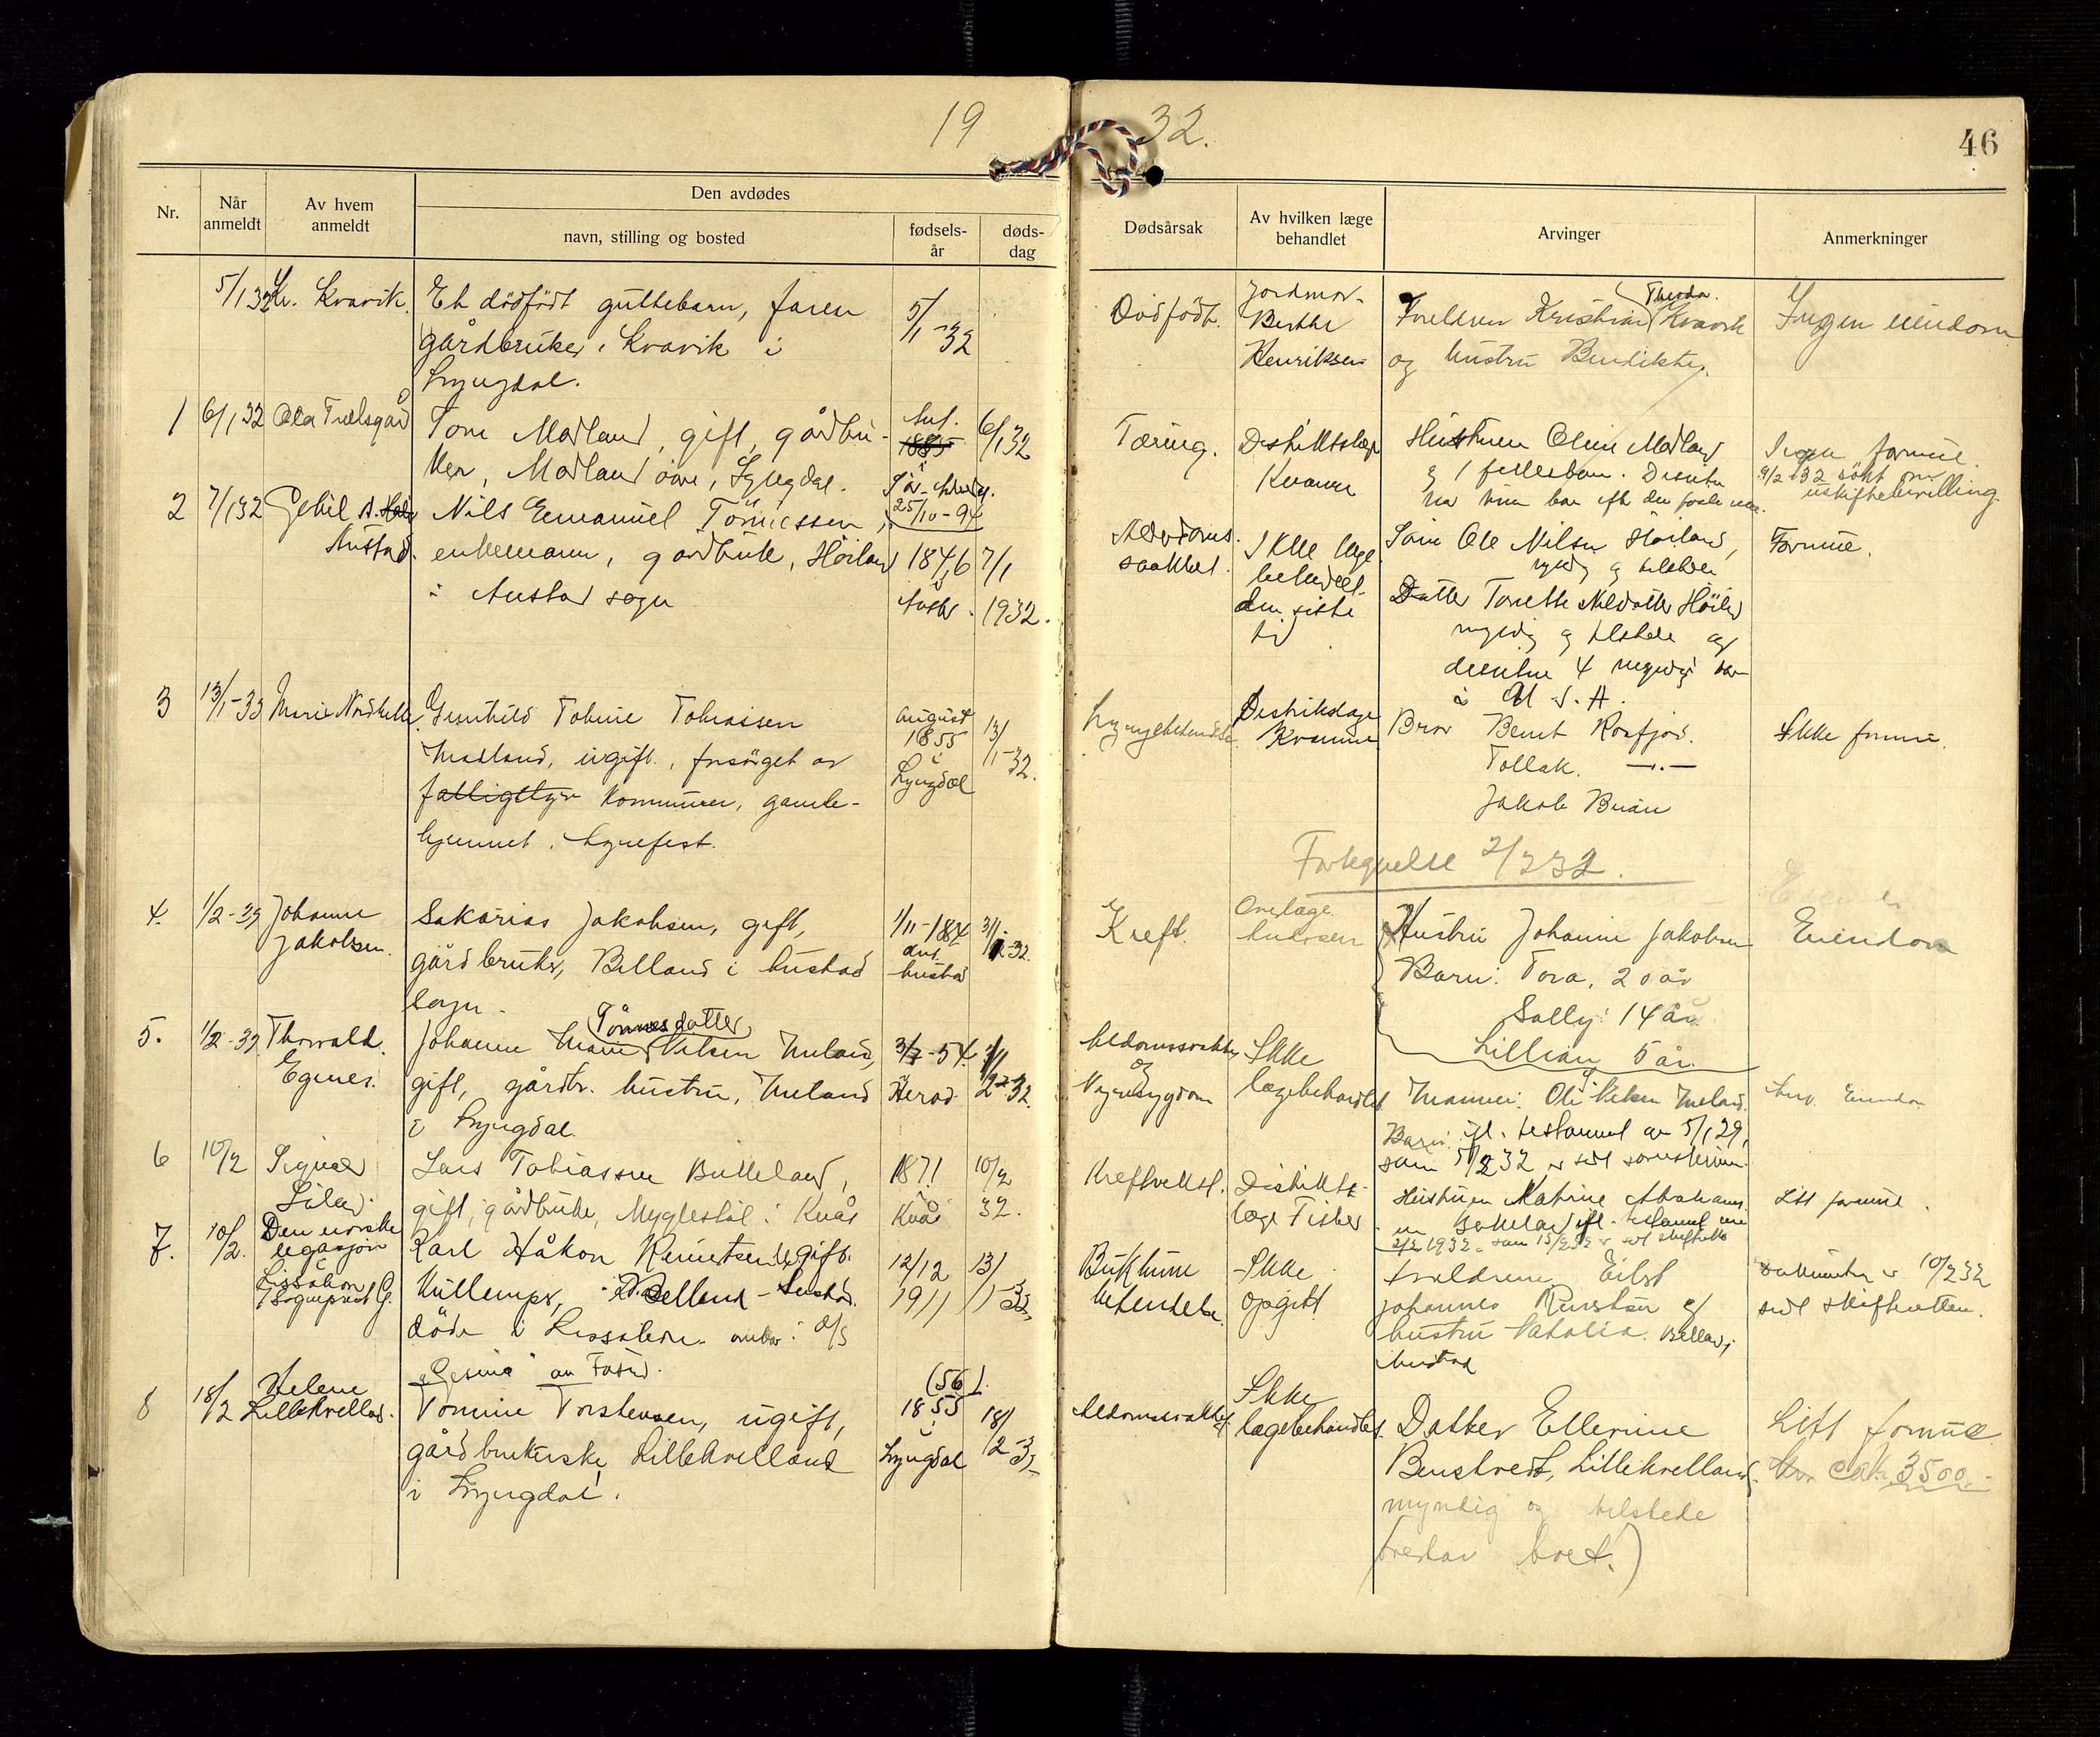 19 32.
46
Nr.
Når anmeldt
Av hvem anmeldt
Den avdødes
navn, stilling og bosted
fødsels-år
døds-dag
Dødsårsak
Av hvilken læge behandlet
Arvinger
Anmerkninger
5/1 32 Kr. Kvavik.
Et dödfödt guttebarn, faren
gårdbruker i Kvavik i
Lyngdal.
5/1-32
Dödfödt.
Jordmor
Berthe
Henriksen
Foreldrene Kristian Theodor Kvavik
og hustru Bendikte.
Ingen eiendom
1 6/1 32 Ola Trælsgård
Tore Modland, gift, gårdbru-
ker, Modland övre, Lyngdal.
Aust.
1885
6/1 32
Tæring.
Distriktslæge
Kvamme
Hustruen Oline Modland
og 1 fellesbarn. Desuten
Ingen formue.
9/2 32 sökt om
uskiftebevilling.
2 7/1 32
Austad.
Nils Emanuel Tönnessen,
enkemann, gårdbruker, Höiland
i Austad sogn
25/10-94
1846
i
Austad.
7/1
1932.
Alderdoms-
svakhet.
Ikke læge
behandlet
den siste
tid.
Sönn Ole Nilsen Höiland,
myndig og tilstede
Datter Tonette Nilsdatter Höiland
myndig og tilstede og
desuten 4 myndige barn
i U.S.A.
Formue.
3 13/1-32 Marie Nordhelle
Gunhild Tobine Tobiassen
Modland, ugift, forsörget av
fattigstyr kommunen, gamle-
hjemmet, Agnefest.
August
1855
i
Lyngdal
13/1-32.
Lungebetendelse
Distriktslæge
Kvamme
Bror Bernt Rosfjord.
Tollak. —.—
Jakob Briseid
Ikke formue.
Fortegnelse 2/2 32.
4. 1/2-32 Johanne
Jakobsen.
Sakarias Jakobsen, gift,
gårdbruker, Belland i Austad
sogn.
1/11-184
Austad
31/1-32.
Kreft.
Overlæge
Andersen
Hustru Johanne Jakobsen
Barn: Tora, 20 år
Solly: 14 år
Lillian 5 år.
Eiendom
5. 1/2-32 Thorvald
Egenes.
Johanne Marie Tönnesdatter Nilsen Meland,
gift, gårdbr. hustru, Meland
i Lyngdal.
3/7-54
i
Herad
1/2-32.
Alderdomssvakhet
og
Nyresygdom
Ikke
lægebehandlet
Mannen: Ole Nilsen Meland.
Barn ifl. testament av 5/1 29,
som 5/2 32 er sedt sorenskriveren.
Eiendom
6 10/2 Sigvald
Lars Tobiassen Birkeland,
gift, gårdbruker, Myglestöl i Kvås
1871
Kvås
10/2
32.
Kreftsvulst.
Distrikts-
læge Fisher
Hustruen Katrine Abrahams-
Litt formue.
7. 10/2. Den norske
legasjon
i Lissabon
v/ Sogneprest G.
Karl Håkon Reinertsen, ugift.
Kullemper, Belland - Austad.
döde i Lissabon ombor i D/S
„Gesina" av Farsund.
12/12
1911
13/1-32
Bukhinne
betendelse
Ikke
opgitt
Foreldrene Eilert
Johannes Reinertsen og
hustru Natalia. Belland,
Austad
Dokumenter 10/2 32
sedt skifteretten.
8 18/2 Helene
Lillekvelland.
Tomine Torstensen, ugift,
gårdbrukerske, Lillekvelland
i Lyngdal.
(56)
1855
i
Lyngdal
18/2-32
Alderdomssvakhet
Ikke
lægebehandlet.
Datter Ellerine
Benestvedt, Lillekvelland.
myndig og tilstede
(overtar boet.)
Litt formue
kr. ca. 3500.-